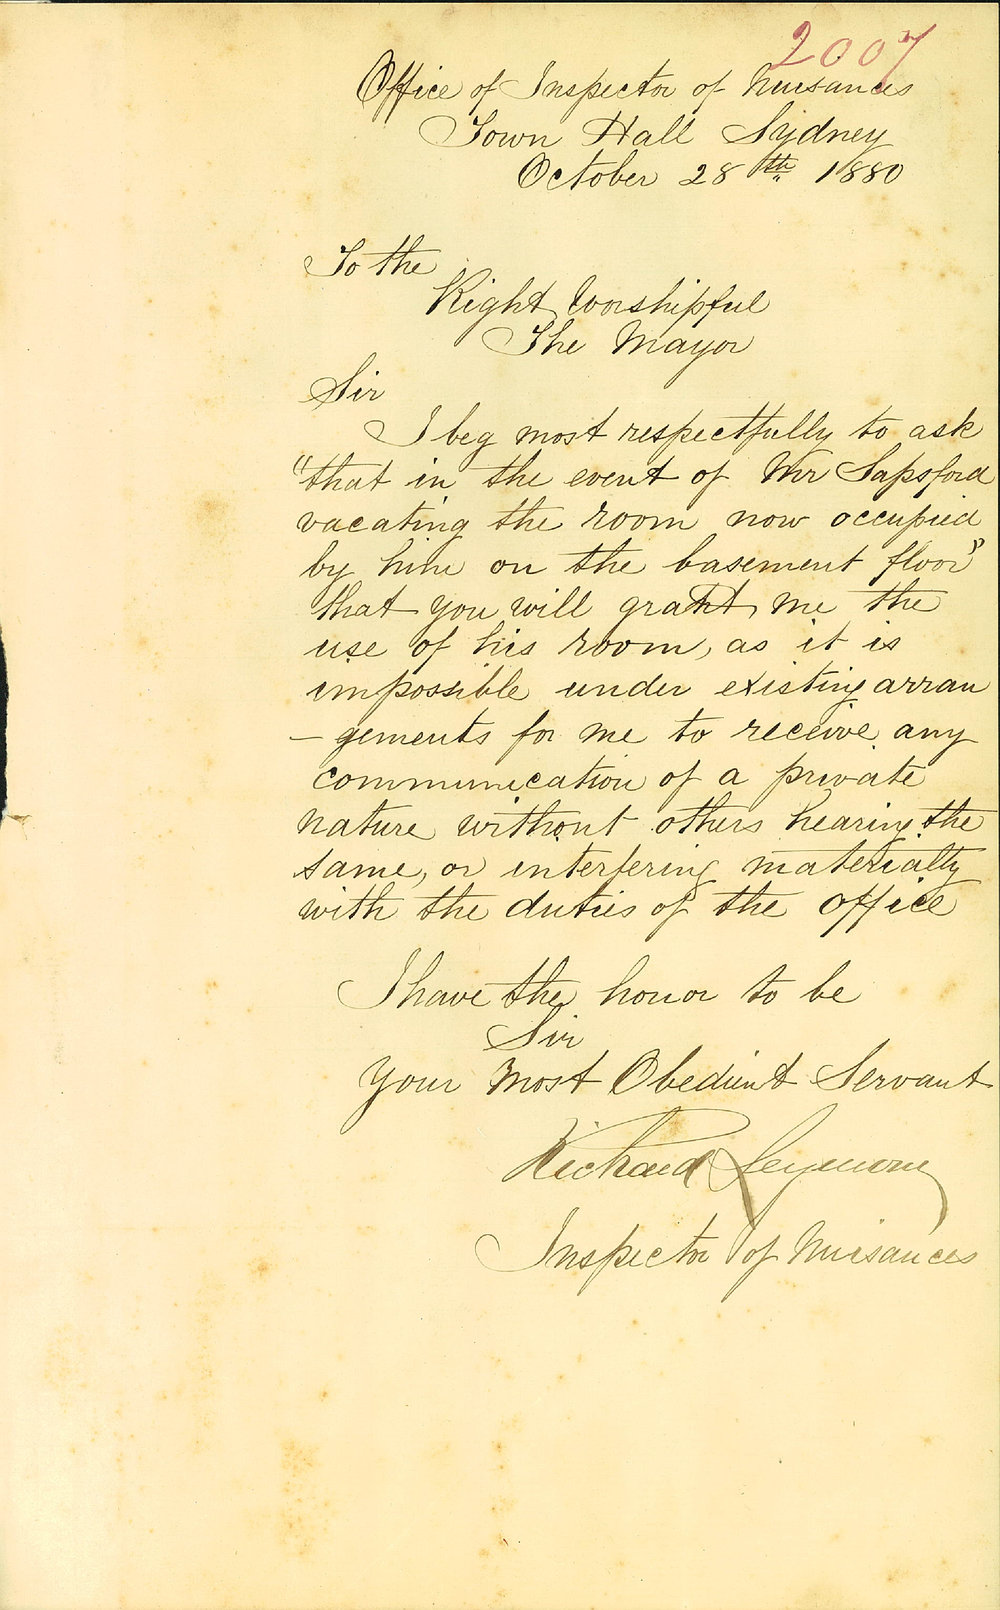 2007
Office of Inspector of Nuisances
Town Hall Sydney
October 28th 1880
To the
Right Worshipful
The Mayor
Sir
I beg most respectfully to ask
"that in the event of Mr Sapsford
vacating the room now occupied
by him on the basement floor"
that you will grant me the
use of his room, as it is
impossible under existing arran
-gements for me to receive any
communication of a private
nature without others hearing the
same, or interfering materially
with the duties of the office
I have the honor to be
Sir
Your Most Obedient Servant
Richard Seymour
Inspector of Nuisances